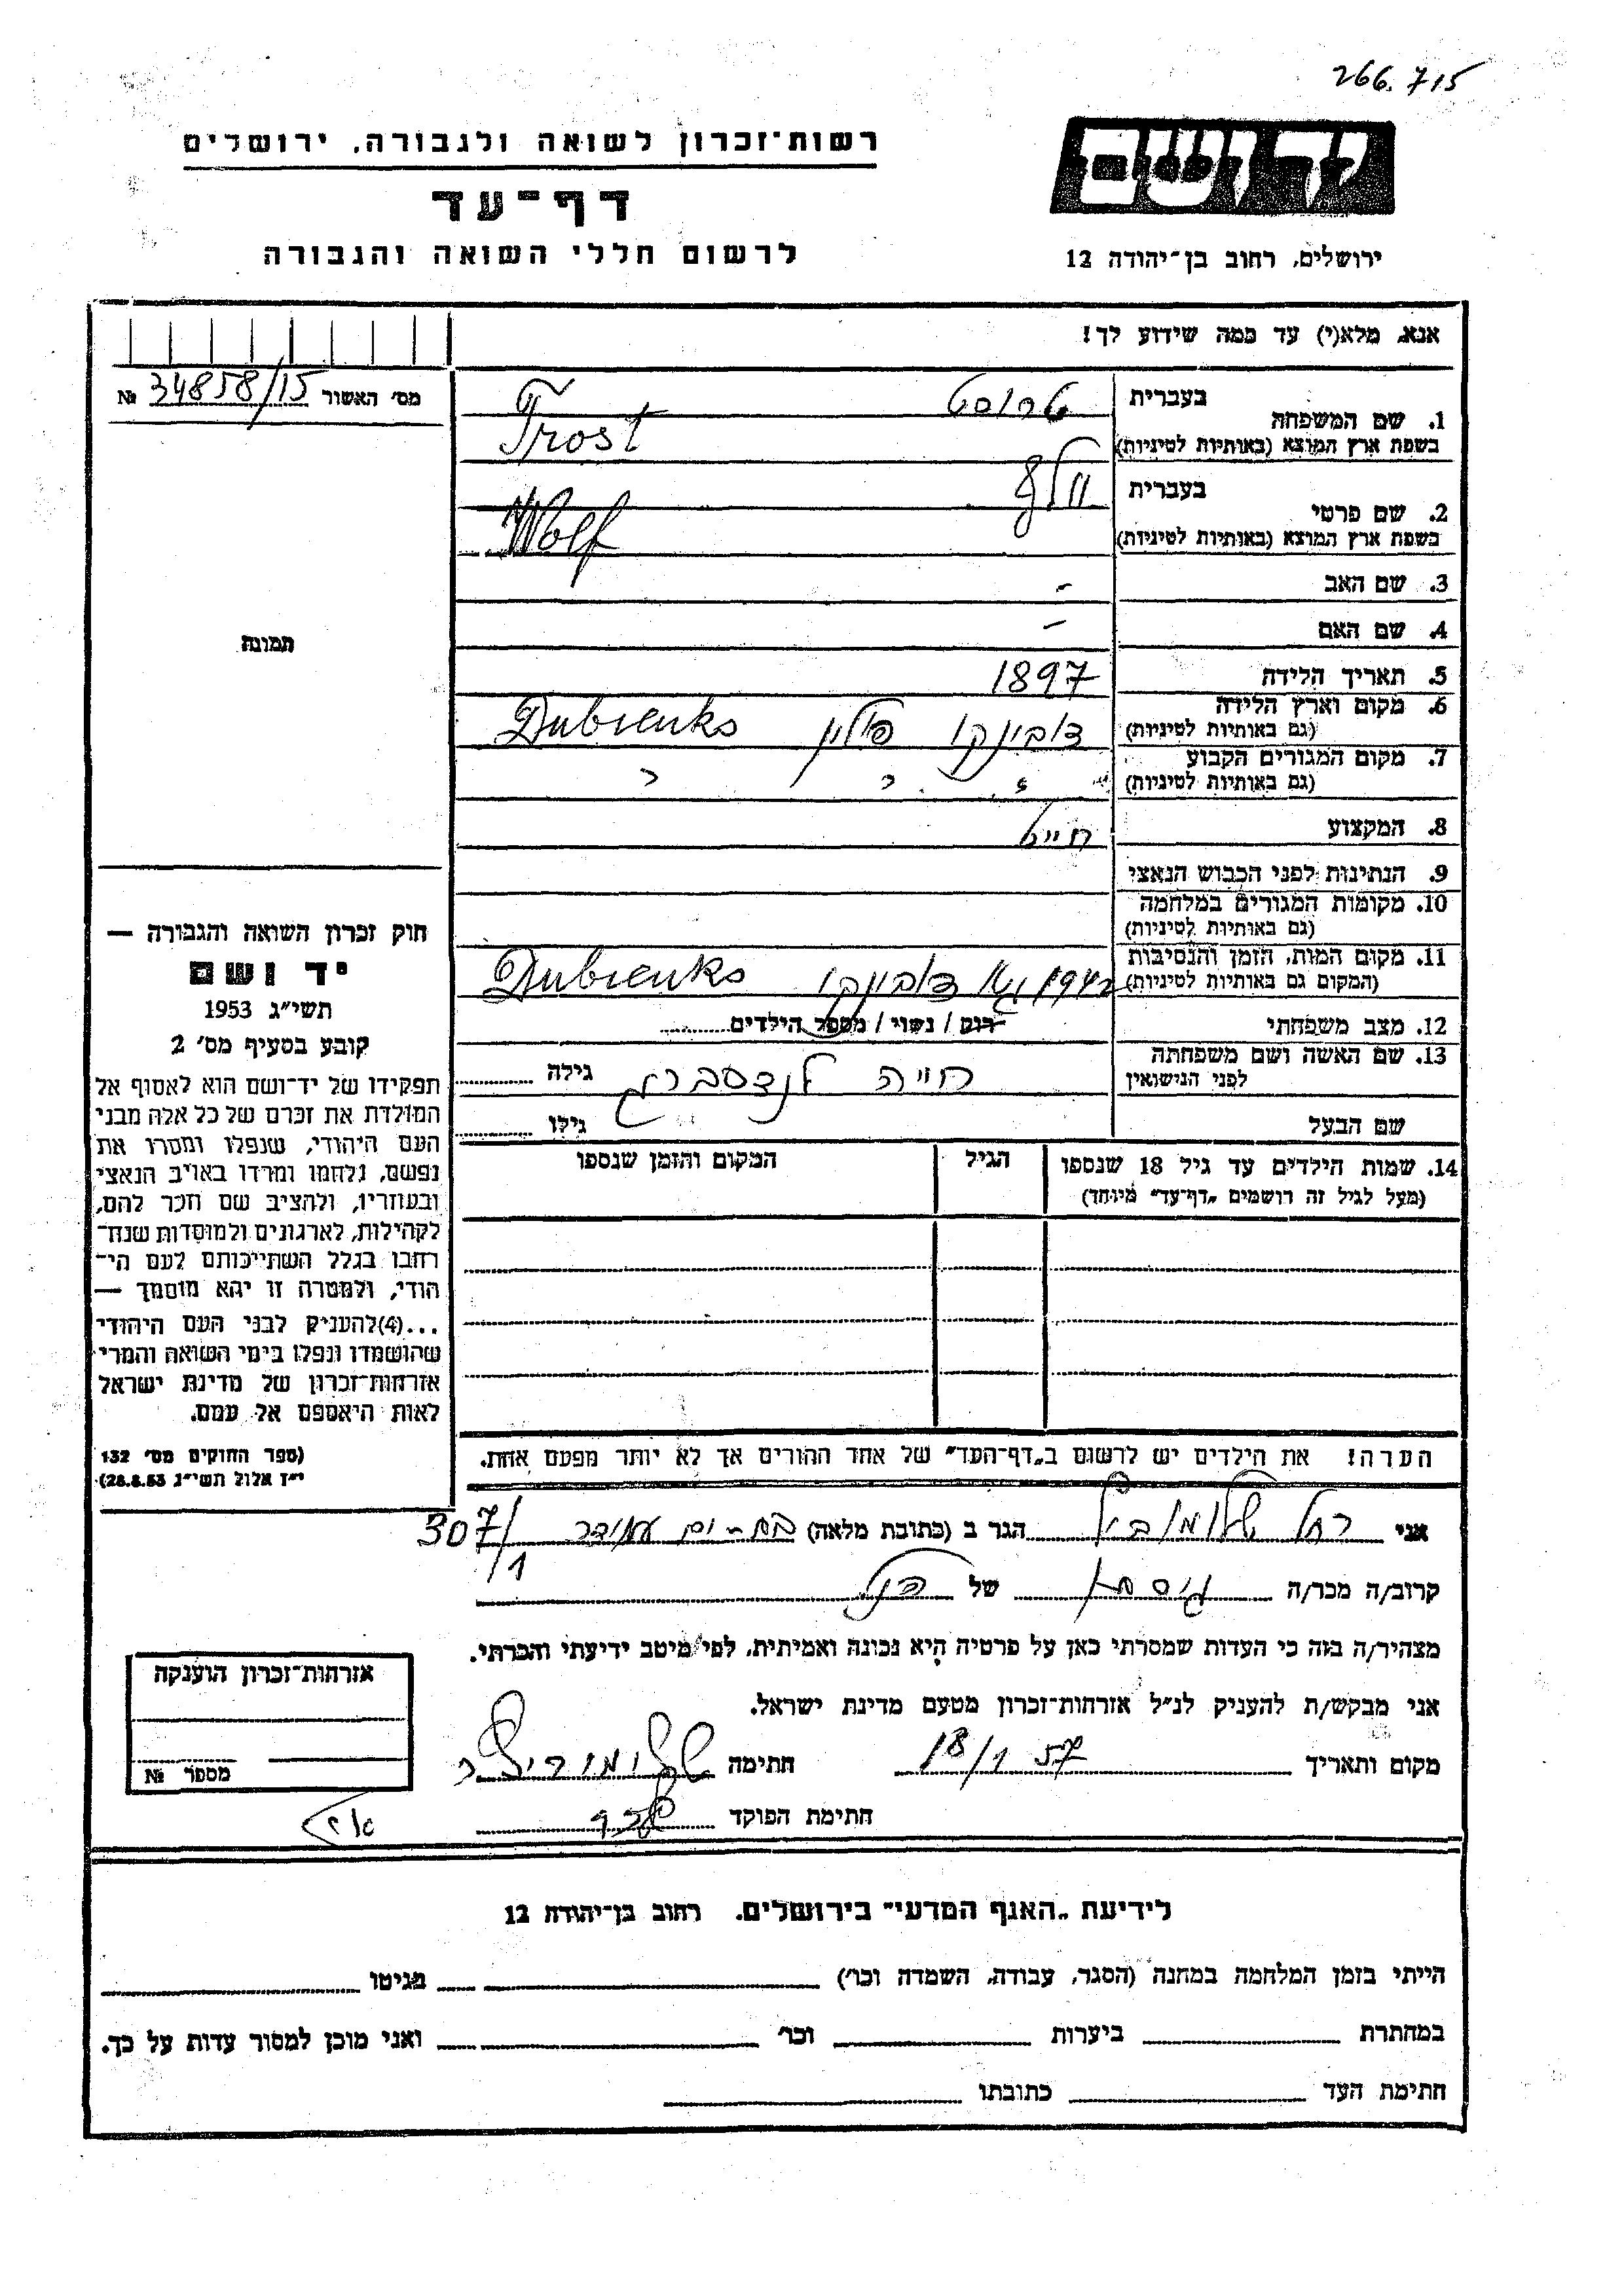 266.715
יד ושם
רשות־זכרון לשואה ולגבורה. ירושלים
דף־עד
לרשום חללי השואה והגבורה
ירושלים, רחוב בן־יהודה 12
אנא, מלא(י) עד כמה שידוע לך!
מס׳ האשור 34858/15 №
בעברית טרוסט
1. שם המשפחה
בשפת ארץ המוצא (באותיות לטיניות) Trost
בעברית וולף
2. שם פרטי
בשפת ארץ המוצא (באותיות לטיניות) Wolf
3. שם האב –
4. שם האם –
תמונה
5. תאריך הלידה 1897
6. מקום וארץ הלידה
(גם באותיות לטיניות) דובינקו פולין Dubienko
7. מקום המגורים הקבוע
(גם באותיות לטיניות)
8. המקצוע חייט
9. הנתינות לפני הכבוש הנאצי
10. מקומות המגורים במלחמה
(גם באותיות לטיניות)
11. מקום המות, הזמן והנסיבות
(המקום גם באותיות לטיניות) 1942 דובינקו Dubienko
12. מצב משפחתי רווק / נשוי / מספר הילדים
13. שם האשה ושם משפחתה
לפני הנישואין חיה לנדסברג גילה
שם הבעל גילו
14. שמות הילדים עד גיל 18 שנספו הגיל המקום והזמן שנספו
(מעל לגיל זה רושמים „דף־עד״ מיוחד)
חוק זכרון השואה והגבורה —
יד ושם
תשי״ג 1953
קובע בסעיף מס׳ 2
תפקידו של יד־ושם הוא לאסוף אל
המולדת את זכרם של כל אלה מבני
העם היהודי, שנפלו ומסרו את
נפשם, נלחמו ומרדו באויב הנאצי
ובעוזריו, ולהציב שם וזכר להם,
לקהילות, לארגונים ולמוסדות שנח־
רבו בגלל השתייכותם לעם הי־
הודי, ולמטרה זו יהא מוסמך —
...(4)להעניק לבני העם היהודי
שהושמדו ונפלו בימי השואה והמרי
אזרחות־זכרון של מדינת ישראל
לאות היאספם אל עמם.
(ספר החוקים מס׳ 132
י״ז אלול תשי״ג 28.8.53)
הערה! את הילדים יש לרשום ב„דף־העד״ של אחד ההורים אך לא יותר מפעם אחת.
אני רחל שלומוביץ הגר ב (כתובת מלאה) בת־ים עמידר 307/1
קרוב/ה מכר/ה גיסתו של הנ״ל
מצהיר/ה בזה כי העדות שמסרתי כאן על פרטיה היא נכונה ואמיתית, לפי מיטב ידיעתי והכרתי.
אני מבקש/ת להעניק לנ״ל אזרחות־זכרון מטעם מדינת ישראל.
מקום ותאריך 18/1 57 חתימה שלומוביץ ר
חתימת הפוקד
אזרחות־זכרון הוענקה
מספר №
לידיעת „האגף המדעי״ בירושלים. רחוב בן־יהודה 12
הייתי בזמן המלחמה במחנה (הסגר, עבודה, השמדה וכו׳) בגיטו
במחתרת ביערות וכו׳ ואני מוכן למסור עדות על כך.
חתימת העד כתובתו